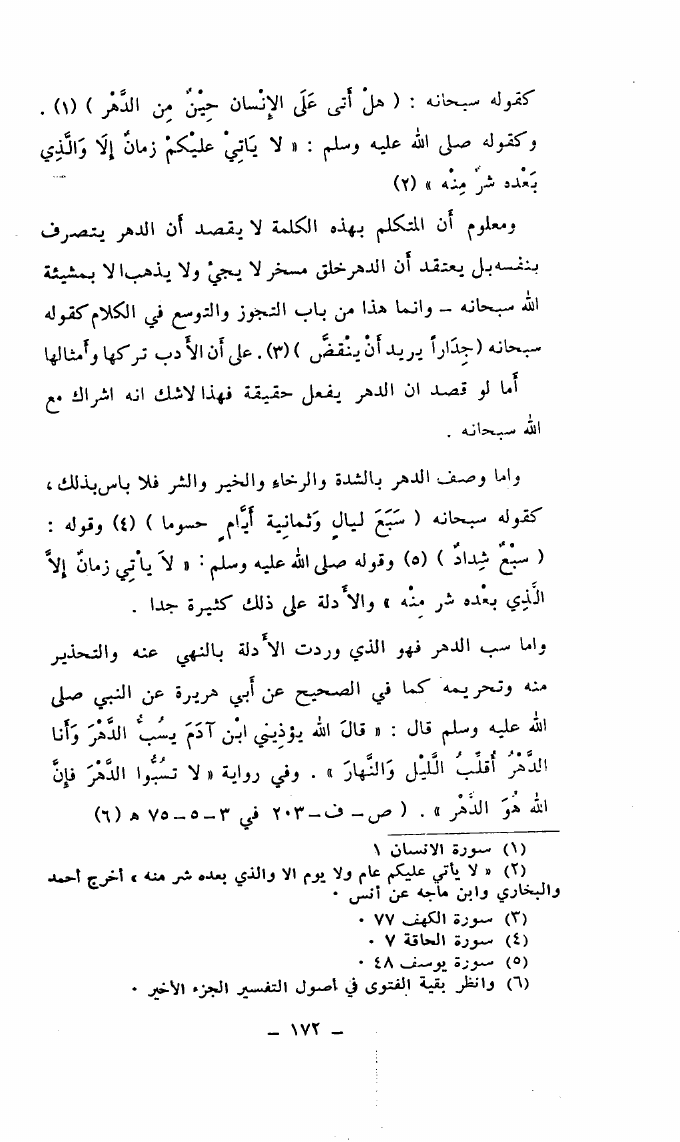 كقوله سبحانه : ( هلْ أَتى عَلَى الإِنْسان حِيْنٌ مِن الدَّهْر ) (١) .
وكقوله صلى الله عليه وسلم : « لا يَاتِيْ عليْكمْ زمانٌ إِلَا وَالَّذِي
بَعْده شرٌ مِنْه » (٢)
ومعلوم أن المتكلم بهذه الكلمة لا يقصد أن الدهر يتصرف
بنفسه بل يعتقد أن الدهر خلق مسخر لا يجيْ ولا يذهب الا بمشيئة
الله سبحانه – وانما هذا من باب التجوز والتوسع في الكلام كقوله
سبحانه (جِدَاراً يريد أَنْ يَنْقضَّ ) (٣). على أن الأدب تركها وأمثالها
أما لو قصد ان الدهر يفعل حقيقة فهذا لاشك انه اشراك مع
الله سبحانه .
واما وصف الدهر بالشدة والرخاء والخير والشر فلا باس بذلك ،
كقوله سبحانه ( سَبَعَ ليالٍ وَثمانِية أَيَّامٍ حسوما ) (٤) وقوله :
( سبْعٌ شِدادٌ ) (٥) وقوله صلى الله عليه وسلم : « لاَ يأْتِي زمانٌ إِلاَّ
الَّذِي بعْده شر مِنْه » والأدلة على ذلك كثيرة جدا .
واما سب الدهر فهو الذي وردت الأدلة بالنهي عنه والتحذير
منه وتحريمه كما في الصحيح عن أبي هريرة عن النبي صلى
الله عليه وسلم قال : « قالَ الله يؤذِيني ابْن آدَمَ يسُبُّ الدَّهْرَ وَأنا
الدَّهْرُ أُقلِّبُ الَّليْل وَالنَّهارَ » . وفي رواية « لا تسُبُّوا الدَّهْرَ فإِنَّ
الله هُوَ الدَّهْر » . ( ص – ف – ٢٠٣ في ٣ – ٥ – ٧٥ ه (٦)
(١) سورة الانسان ١
(٢) « لا يأتي عليكم عام ولا يوم الا والذي بعده شر منه » أخرج أحمد
والبخاري وابن ماجه عن أنس .
(٣) سورة الكهف ٧٧ .
(٤) سورة الحاقة ٧ .
(٥) سورة يوسف ٤٨ .
(٦) وانظر بقية الفتوى في أصول التفسير الجزء الأخير .
– ١٧٢ –